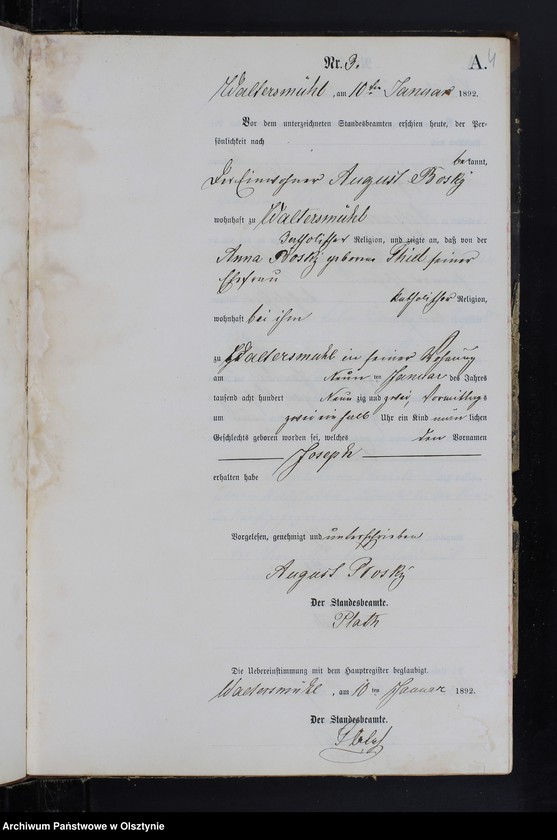 Nr. 3.
A. 4
Waltersmühl, am 10ten Januar 1892.
Vor dem unterzeichneten Standesbeamten erschien heute, der Per-
sönlichkeit nach
bekannt,
Der Einwohner August
wohnhaft zu Waltersmühl
katholischer Religion, und zeigte an, daß von der
Anna geborene seiner
Ehefrau
katholischer Religion,
wohnhaft bei ihm
zu Waltersmühl in seiner Wohnung
am Neun ten Januar des Jahres
tausend acht hundert Neun zig und zwei, Vormittags
um zwei ein halb Uhr ein Kind männ lichen
Geschlechts geboren worden sei, welches den Vornamen
Joseph
erhalten habe
Vorgelesen, genehmigt und unterschrieben
August
Der Standesbeamte.
Plath
Die Uebereinstimmung mit dem Hauptregister beglaubigt.
Waltersmühl, am 10ten Januar 1892.
Der Standesbeamte.
Plath
Archiwum Państwowe w Olsztynie